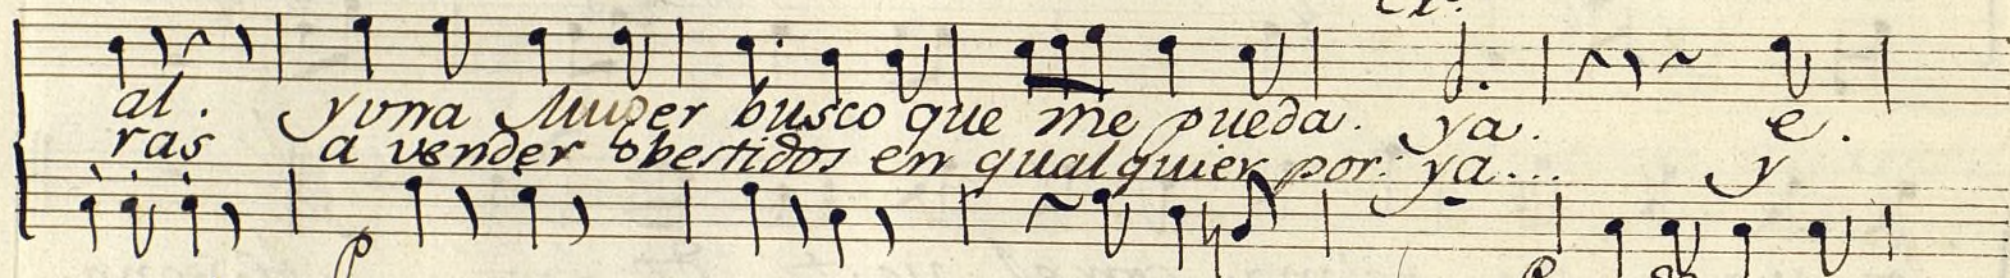 al. y vna Muger busco que me pueda. ya. e.
ras a vender bestidos en qualquier por: ya... y
p